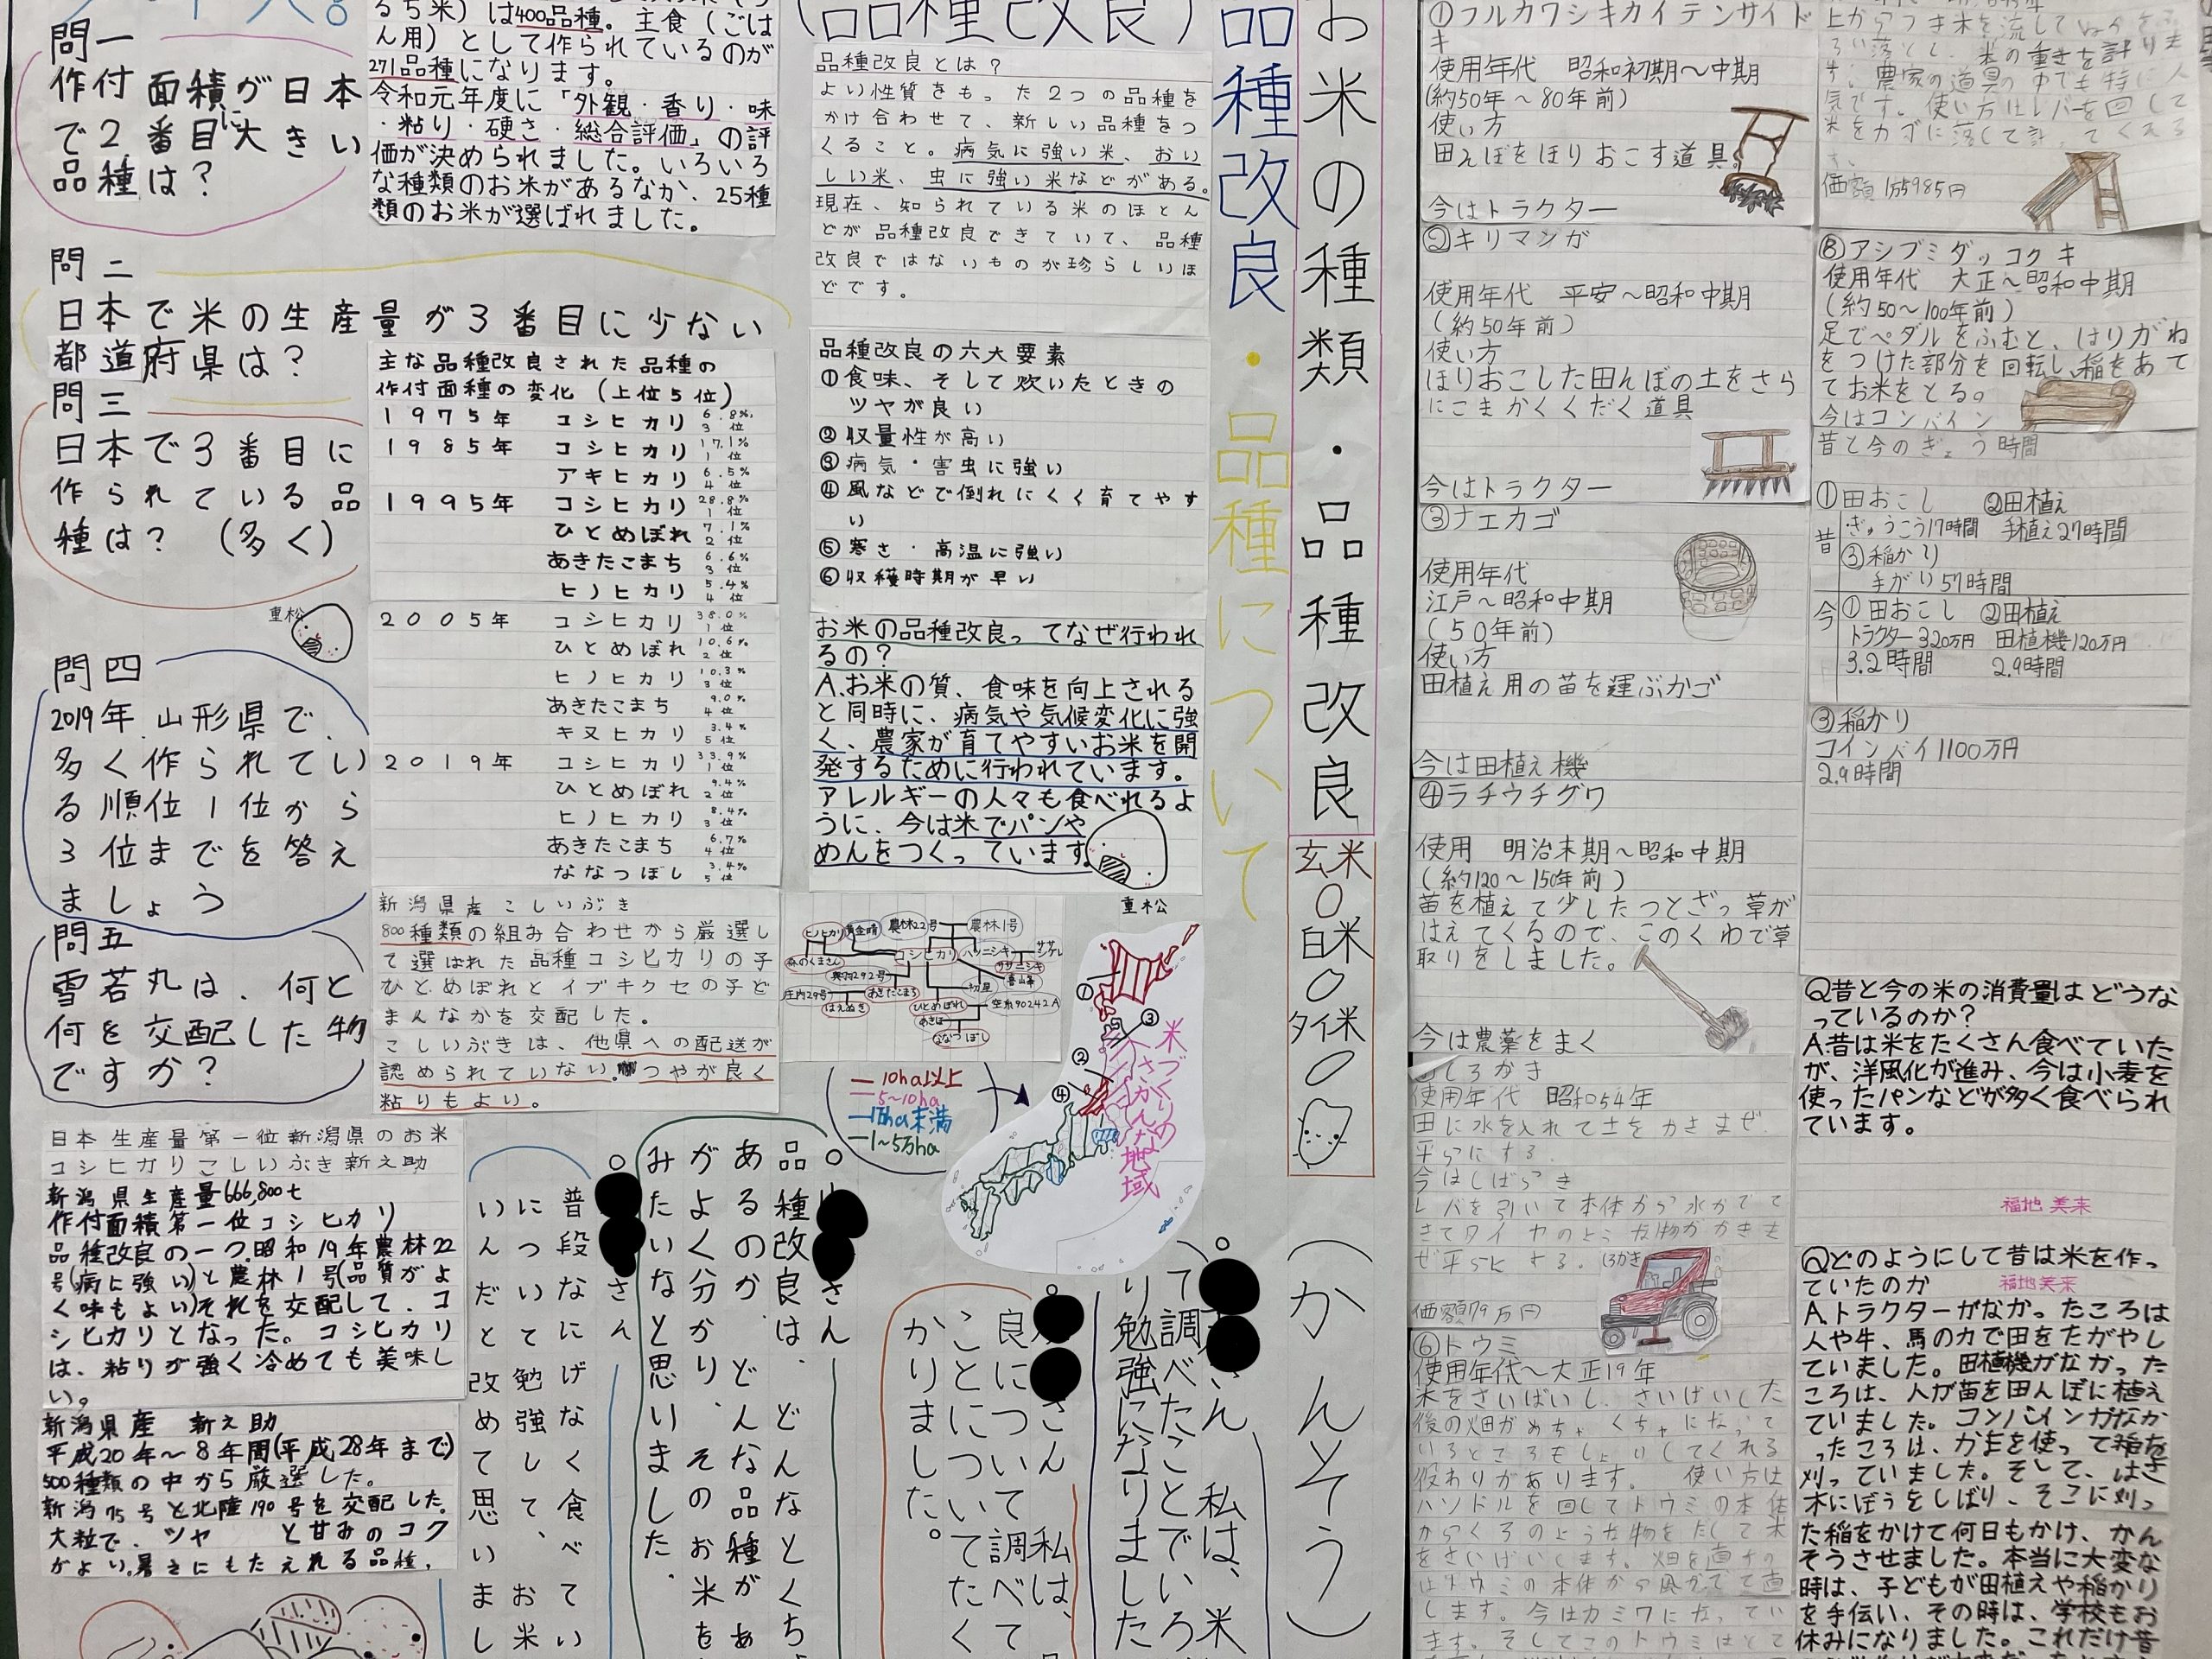 お米の種類・品種改良
玄米
白米
タイ米
品種改良・品種について
(品種改良)
品種改良とは?
よい性質をもった2つの品種を
かけ合わせて、新しい品種をつ
くること。病気に強い米、おい
しい米、虫に強い米などがある。
現在、知られている米のほとん
どが品種改良できていて、品種
改良ではないものが珍らしいほ
どです。
品種改良の六大要素
①食味、そして炊いたときの
ツヤが良い
②収量性が高い
③病気・害虫に強い
④風などで倒れにくく育てやす
い
⑤寒さ・高温に強い
⑥収穫時期が早い
お米の品種改良ってなぜ行われ
るの?
A.お米の質、食味を向上される
と同時に、病気や気候変化に強
く、農家が育てやすいお米を開
発するために行われています。
アレルギーの人々も食べれるよ
うに、今は米でパンや
めんをつくっています。
重松
ヒノヒカリ
黄金晴
農林22号
農林1号
森のくまさん
コシヒカリ
ハツニシキ
ササシグレ
ササニシキ
奥羽292号
初星
庄内29号
あきたこまち
はえぬき
ひとめぼれ
空系90242A
あきほ
ななつぼし
10ha以上
5〜10ha
1万ha未満
1〜5万ha
米づくりの
さかんな地域
①
③
②
④
問一
作付面積が日本
で2番目に大きい
品種は?
問二
日本で米の生産量が3番目に少ない
都道府県は?
問三
日本で3番目に
作られている品
種は?(多く)
重松
問四
2019年、山形県で、
多く作られてい
る順位1位から
3位までを答え
ましょう
問五
雪若丸は、何と
何を交配した物
ですか?
るち米)は400品種。主食(ごは
ん用)として作られているのが
271品種になります。
令和元年度に「外観・香り・味
・粘り・硬さ・総合評価」の評
価が決められました。いろいろ
な種類のお米があるなか、25種
類のお米が選ばれました。
主な品種改良された品種の
作付面種の変化(上位5位)
1975年 コシヒカリ 6.8% 3位
1985年 コシヒカリ 17.1% 1位
アキヒカリ 6.5% 4位
1995年 コシヒカリ 28.8% 1位
ひとめぼれ 7.1% 2位
あきたこまち 6.6% 3位
ヒノヒカリ 5.4% 4位
2005年 コシヒカリ 38.0% 1位
ひとめぼれ 10.6% 2位
ヒノヒカリ 10.3% 3位
あきたこまち 9.0% 4位
キヌヒカリ 3.4% 5位
2019年 コシヒカリ 33.9% 1位
ひとめぼれ 9.4% 2位
ヒノヒカリ 8.4% 3位
あきたこまち 6.7% 4位
ななつぼし 3.4% 5位
新潟県産こしいぶき
800種類の組み合わせから厳選し
て選ばれた品種コシヒカリの子
ひとめぼれとイブキクセの子ど
まんなかを交配した。
こしいぶきは、他県への配送が
認められていない。つやが良く
粘りもよい。
日本生産量第一位新潟県のお米
コシヒカリこしいぶき新之助
新潟県生産量666,800t
作付面積第一位コシヒカリ
品種改良の一つ。昭和19年農林22
号(病に強い)と農林1号(品質がよ
く味もよい)それを交配して、コ
シヒカリとなった。コシヒカリ
は、粘りが強く冷めても美味し
い。
新潟県産 新之助
平成20年〜8年間(平成28年まで)
500種類の中から厳選した。
新潟75号と北陸190号を交配した。
大粒で、ツヤ と甘みのコク
がよい。暑さにもたえれる品種。
(かんそう)
さん 私は、米
て調べたことでいろ
り勉強になりました
さん 私は、
良について調べて
ことについてたく
かりました。
さん
品種改良は、どんなとくち
あるのか、どんな品種があ
がよく分かり、そのお米を
みたいなと思いました。
さん
普段なにげなく食べてい
について勉強して、お米
いんだと改めて思いまし
①フルカワシキカイテンサイド
キ
使用年代 昭和初期〜中期
(約50年〜80年前)
使い方
田んぼをほりおこす道具。
今はトラクター
②キリマンガ
使用年代 平安〜昭和中期
(約50年前)
使い方
ほりおこした田んぼの土をさら
にこまかくくだく道具
今はトラクター
③ナエカゴ
使用年代
江戸〜昭和中期
(50年前)
使い方
田植え用の苗を運ぶかご
今は田植え機
④ラチウチグワ
使用 明治末期〜昭和中期
(約120〜150年前)
苗を植えて少したつとざっ草が
はえてくるので、このくわで草
取りをしました。
今は農薬をまく
しろかき
使用年代 昭和54年
田に水を入れて土をかきまぜ、
平らにする。
今はしばらき
レバを引いて本体から水がでて
きてタイヤのような物がかきま
ぜ平らにする。
しろかき
価額79万円
⑥トウミ
使用年代〜大正19年
米をさいばいし、さいばいした
後の畑がめちゃくちゃになって
いるところもしょりしてくれる
役わりがあります。 使い方は
ハンドルを回してトウミの本体
からくろのような物をだして米
をさいばいします。畑を直すの
はトウミの本体から風がでて直
します。今はカミワになってい
ます。そしてこのトウミはとて
上からつき木を流して
ろい落とし、米の重さを計りま
す。農家の道具の中でも特に人
気です。使い方はレバーを回して
米をカゴに落して計ってくれる
す。
価額1万5985円
⑧アシブミダッコクキ
使用年代 大正〜昭和中期
(約50〜100年前)
足でペダルをふむと、はりがね
をつけた部分を回転し、稲をあて
てお米をとる。
今はコンバイン
昔と今のぎょう時間
昔
①田おこし ②田植え
ぎゅうこう17時間 手植え27時間
③稲かり
手がり57時間
今
①田おこし ②田植え
トラクター320万円 田植機120万円
3.2時間 2.9時間
③稲かり
コインバイ1100万円
2.9時間
Q昔と今の米の消費量はどうな
っているのか?
A.昔は米をたくさん食べていた
が、洋風化が進み、今は小麦を
使ったパンなどが多く食べられ
ています。
福地 美来
Qどのようにして昔は米を作っ
ていたのか
福地美来
A.トラクターがなかったころは
人や牛、馬の力で田をたがやし
ていました。田植機がなかった
ころは、人が苗を田んぼに植え
ていました。コンバインがなか
ったころは、かまを使って稲を
刈っていました。そして、はさ
木にぼうをしばり、そこに刈っ
た稲をかけて何日もかけ、かん
そうさせました。本当に大変な
時は、子どもが田植えや稲かり
を手伝い、その時は、学校もお
休みになりました。これだけ昔